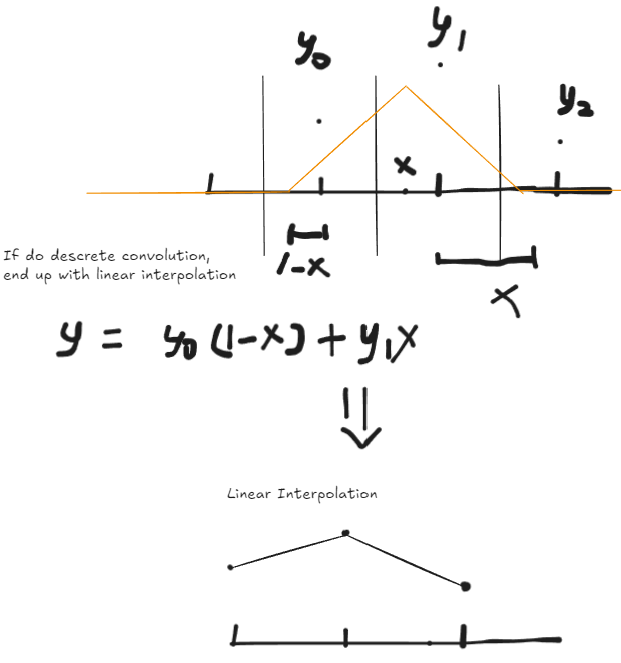 y₁
y₀
y₂
x
1-x
x
If do descrete convolution,
end up with linear interpolation
y = y₀ (1-x) + y₁x
Linear Interpolation